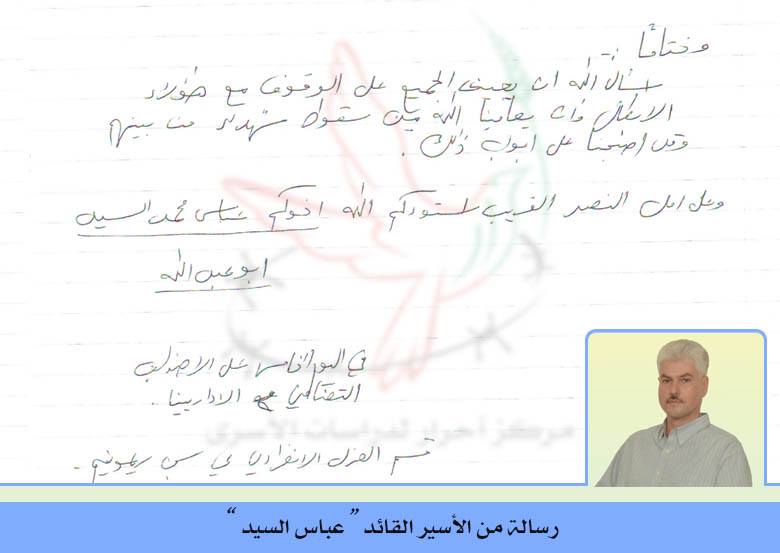 وختاماً :-
اسأل الله ان يعين الجميع على الوقوف مع هؤلاء
الابطال وان يعافينا الله من سقوط شهداء من بينهم
وقد اصبحنا على ابواب ذلك .
وعلى امل النصر القريب استودعكم الله اخوكم عباس محمد السيد
ابو عبد الله
في اليوم الخامس على الاضراب
التضامني مع الاداريين .
مركز أحرار لدراسات الأسرى
قسم العزل الانفرادي في سجن ريمونيم .
رسالة من الأسير القائد " عباس السيد "